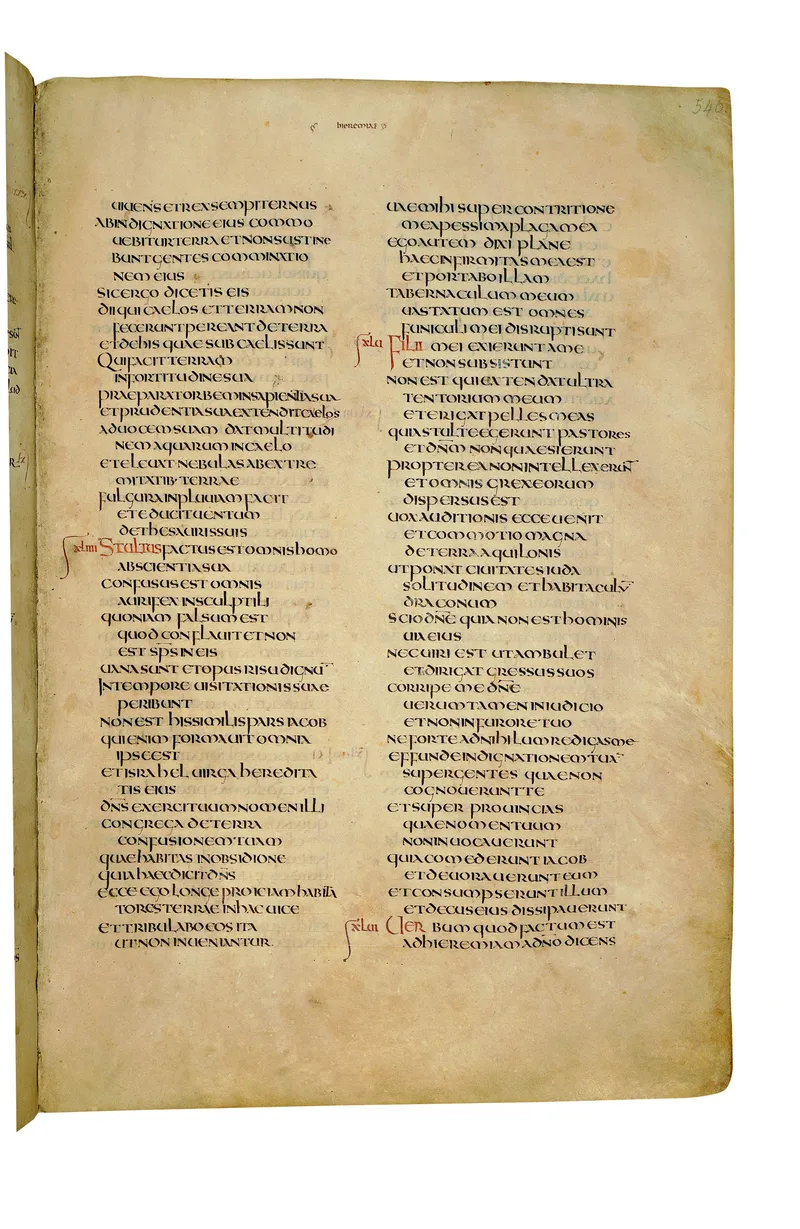 546
hieremias
uiuens et rex sempiternus
ab indignatione eius commo
uebitur terra et non sustine
bunt gentes comminatio
nem eius
sic ergo dicetis eis
dii qui caelos et terram non
fecerunt pereant de terra
et de his quae sub caelis sunt
Qui facit terram
in fortitudine sua
praeparat orbem in sapientia sua
et prudentia sua extendit caelos
ad uocem suam dat multitudi
nem aquarum in caelo
et eleuat nebulas ab extre
mitatib· terrae
fulgura in pluuiam facit
et educit uentum
de thesauris suis
xliiii Stultus factus est omnis homo
ab scientia sua
confusus est omnis
aurifex in sculptili
quoniam falsum est
quod conflauit et non
est sp̄s in eis
uana sunt et opus risu dignū
In tempore uisitationis suae
peribunt
non est his similis pars iacob
qui enim formauit omnia
ipse est
et israhel uirga heredita
tis eius
dn̄s exercituum nomen illi
congrega de terra
confusionem tuam
quae habitas in obsidione
quia haec dicit dn̄s
ecce ego longe proiciam habita
tores terrae in hac uice
et tribulabo eos ita
ut non inueniantur
uae mihi super contritione
mea pessima plaga mea
ego autem dixi plane
haec infirmitas mea est
et portabo illam
tabernaculum meum
uastatum est omnes
funiculi mei disrupti sunt
xlu Filii mei exierunt a me
et non subsistunt
non est qui extendat ultra
tentorium meum
et erigat pelles meas
quia stulte egerunt pastores
et dn̄m non quaesierunt
propterea non intellexerūt
et omnis grex eorum
dispersus est
uox auditionis ecce uenit
et commotio magna
de terra aquilonis
ut ponat ciuitates iuda
solitudinem et habitaculū
draconum
scio dn̄e quia non est hominis
uia eius
nec uiri est ut ambulet
et dirigat gressus suos
corripe me dn̄e
uerumtamen in iudicio
et non in furore tuo
ne forte ad nihilum redigas me
effunde indignationem tuā
super gentes quae non
cognouerunt te
et super prouincias
quae nomen tuum
non inuocauerunt
quia comederunt iacob
et deuorauerunt eum
et consumpserunt illum
et decus eius dissipauerunt
xlui Uerbum quod factum est
ad hieremiam a dn̄o dicens